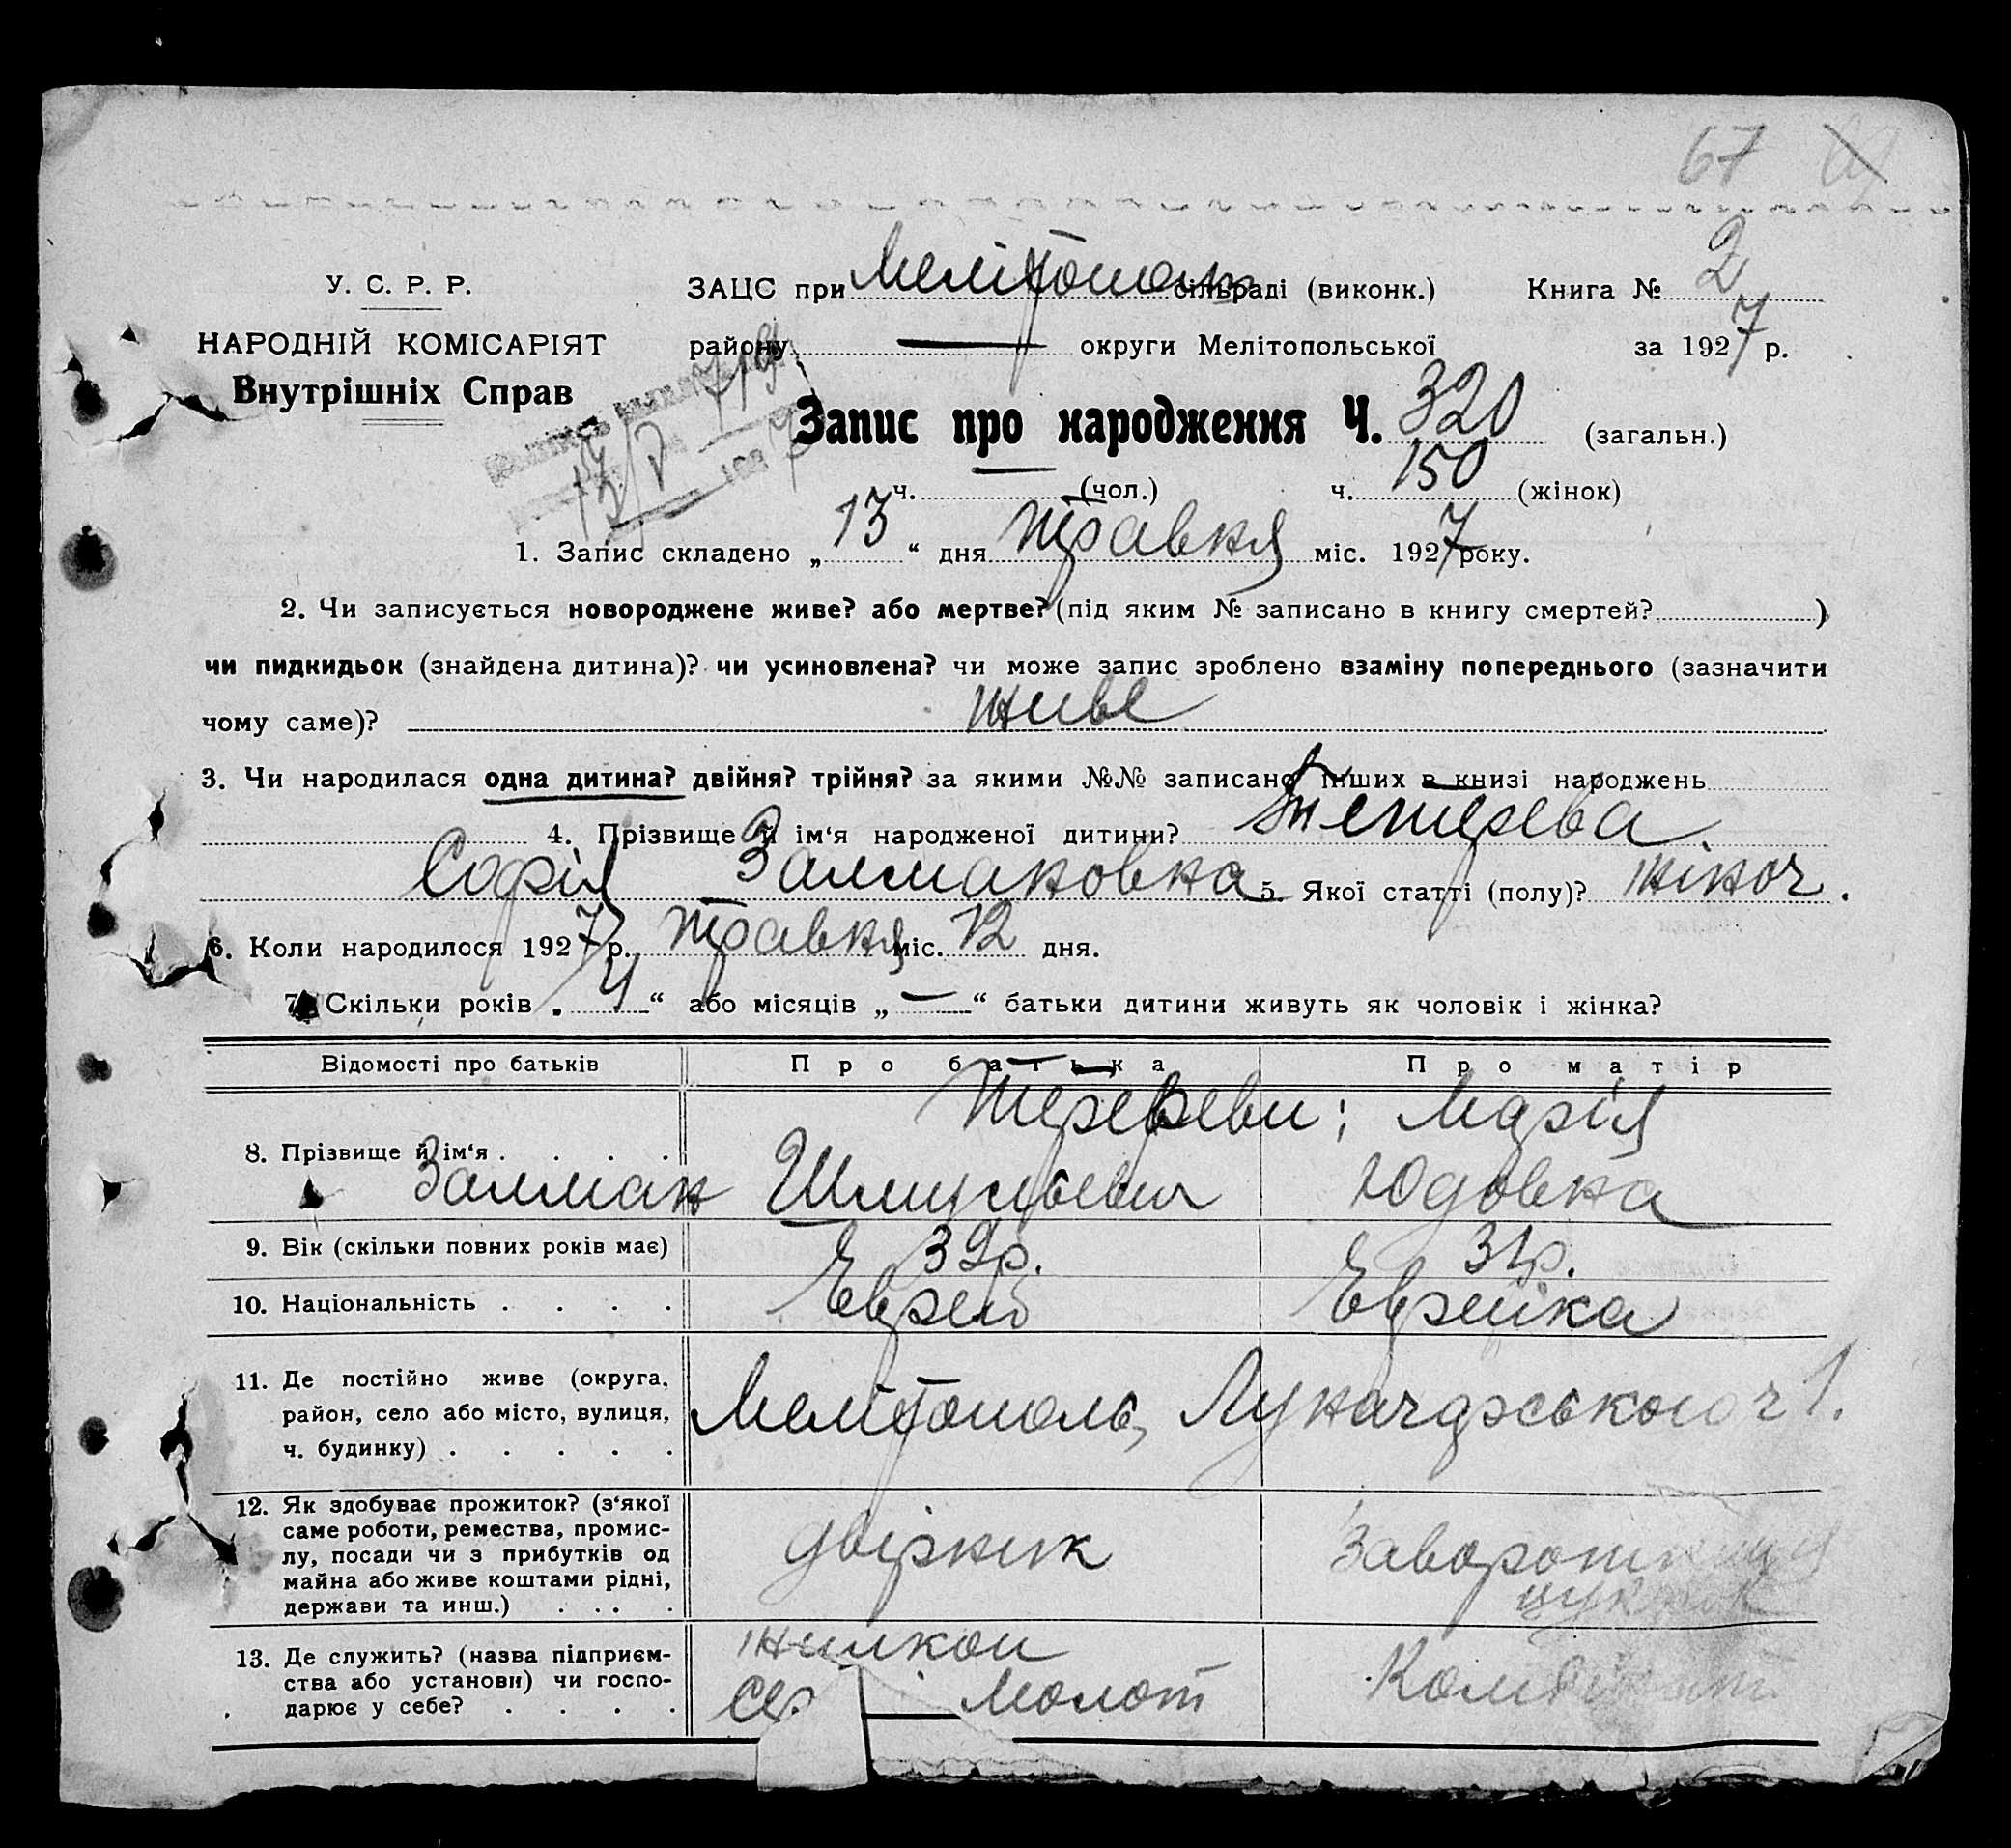 67
У. С. Р. Р.
НАРОДНІЙ КОМІСАРІЯТ
Внутрішніх Справ
ЗАЦС при Мелітополь сільраді (виконк.) Книга № 2
району — округи Мелітопольської за 1927 р.
Запис про народження Ч. 320 (загальн.)
ч. — (чол.) ч. 150 (жінок)
1. Запис складено „13“ дня травня міс. 1927 року.
2. Чи записується новороджене живе? або мертве? (під яким № записано в книгу смертей? )
чи пидкидьок (знайдена дитина)? чи усиновлена? чи може запис зроблено взаміну попереднього (зазначити
чому саме)? живе
3. Чи народилася одна дитина? двійня? трійня? за якими №№ записано інших в книзі народжень
4. Прізвище й ім‘я народженої дитини?
Софія Залмановна 5. Якої статті (полу)? жіноч.
6. Коли народилося 1927 р. травня міс. 12 дня.
7. Скільки років „4“ або місяців „—“ батьки дитини живуть як чоловік і жінка?
Відомості про батьків Про батька Про матір
8. Прізвище й ім‘я . . . . Марія
Залман Шмульевич Юдовна
9. Вік (скільки повних років має) 39р. 31р.
10. Національність . . . . Еврей Еврейка
11. Де постійно живе (округа,
район, село або місто, вулиця,
ч. будинку) . . . . . Мелітополь, Луначарського ч 1.
12. Як здобуває прожиток? (з‘якої
саме роботи, ремества, промис-
лу, посади чи з прибутків од
майна або живе коштами рідні,
держави та инш.) . . . . двірник
13. Де служить? (назва підприєм-
ства або установи) чи госпо-
дарює у себе? . . . . жилкоп
Сер. Молот